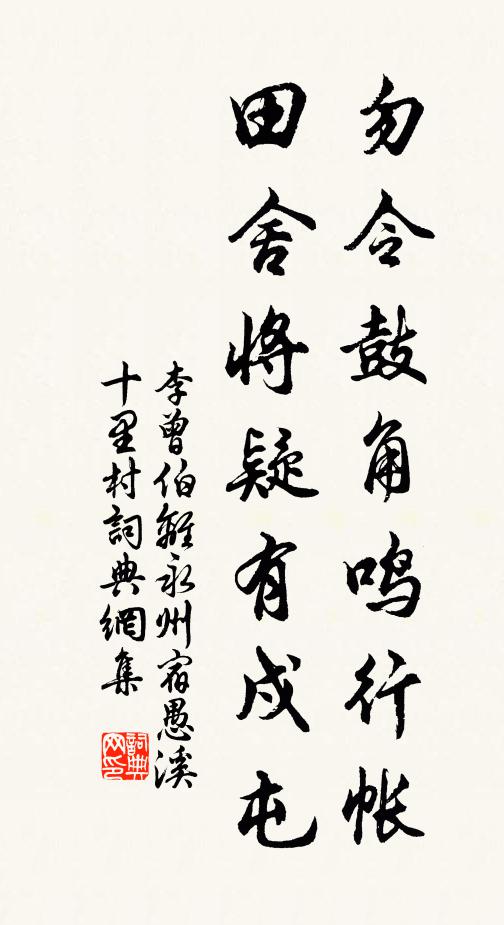 勿令鼓角鳴行帐
田舍將疑有戍屯
李曾伯離永州宿愚溪
十里村詞典網集
詞典网印